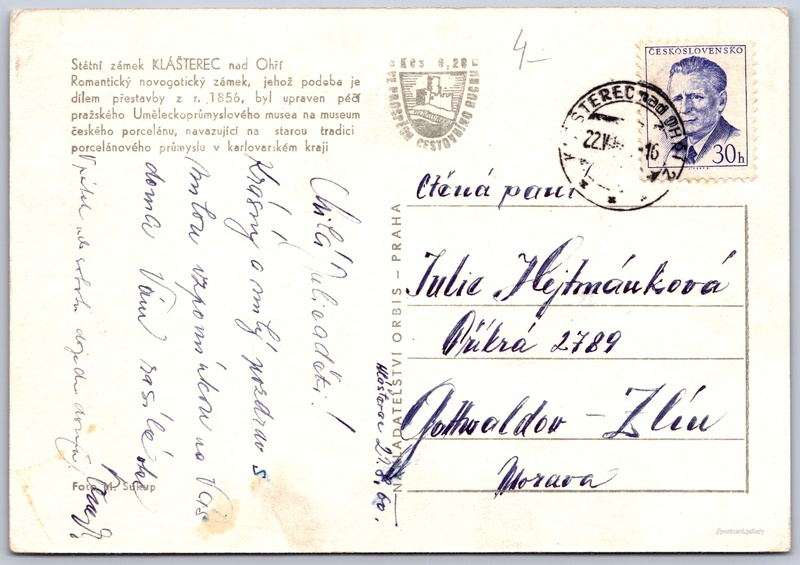 Státní zámek KLÁŠTEREC nad Ohří
Romantický novogotický zámek, jehož podoba je
dílem přestavby z r. 1856, byl upraven péčí
pražského Uměleckoprůmyslového musea na museum
českého porcelánu, navazující na starou tradici
porcelánového průmyslu v karlovarském kraji
Kčs 0,20
VE PROSPĚCH CESTOVNÍHO RUCHU
4-
ČESKOSLOVENSKO
30h
KLÁŠTEREC nad OHŘÍ
22.V -16
Milá Julie a děti!
Krásný a milý pozdrav s
milou vzpomínkou na Vás
doma Vám zasílá
V pátek
Klášterec 22.8.60.
Foto M. Sukup
NAKLADATELSTVÍ ORBIS – PRAHA
Ctěná paní
Julie Hejtmánková
Příkrá 2789
Gottwaldov – Zlín
Morava